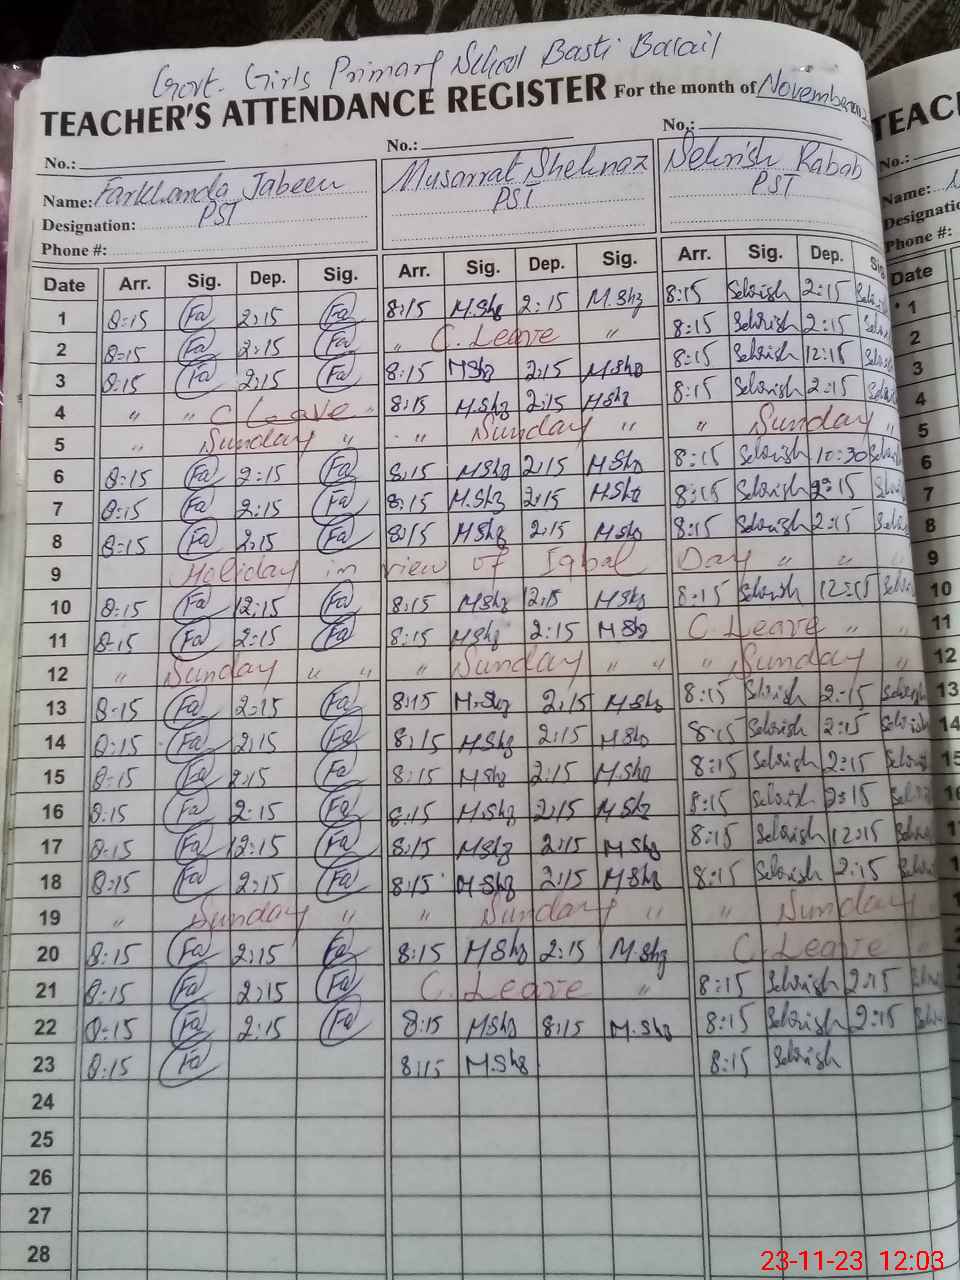 Govt. Girls Primary School Basti
TEACHER'S ATTENDANCE REGISTER For the month of November
No.: No.: No.:
Name: Farkhanda Jabeen Musarrat Shehnaz Sehrish Rabab
Designation: PST PST PST
Phone #:
Date Arr. Sig. Dep. Sig. Arr. Sig. Dep. Sig. Arr. Sig. Dep. Sig
1 8:15 Fa 2:15 Fa 8:15 M.Shz 2:15 M.Shz 8:15 Sehrish 2:15
2 8:15 Fa 2:15 Fa " C. Leave " 8:15 Sehrish 2:15
3 8:15 Fa 2:15 Fa 8:15 MShz 2:15 M.Shz 8:15 Sehrish 12:15
4 " " C Leave " 8:15 M.Shz 2:15 MShz 8:15 Sehrish 2:15
5 " Sunday " " Sunday " " Sunday "
6 8:15 Fa 2:15 Fa 8:15 MShz 2:15 MShz 8:15 Sehrish 10:30
7 8:15 Fa 2:15 Fa 8:15 M.Shz 2:15 MShz 8:15 Sehrish 2:15
8 8:15 Fa 2:15 Fa 8:15 MShz 2:15 MShz 8:15 Sehrish 2:15
9 Holiday in view of Iqbal Day " " "
10 8:15 Fa 12:15 Fa 8:15 MShz 12:15 MShz 8:15 Sehrish 12:15
11 8:15 Fa 2:15 Fa 8:15 MShz 2:15 MShz C. Leave " "
12 " Sunday " " " Sunday " " " Sunday "
13 8:15 Fa 2:15 Fa 8:15 M.Shz 2:15 MShz 8:15 Sehrish 2:15
14 8:15 Fa 2:15 Fa 8:15 MShz 2:15 MShz 8:15 Sehrish 2:15
15 8:15 Fa 2:15 Fa 8:15 MShz 2:15 M.Shz 8:15 Sehrish 2:15
16 8:15 Fa 2:15 Fa 8:15 M.Shz 2:15 MShz 8:15 Sehrish 2:15
17 8:15 Fa 12:15 Fa 8:15 MShz 2:15 MShz 8:15 Sehrish 12:15
18 8:15 Fa 2:15 Fa 8:15 M.Shz 2:15 MShz 8:15 Sehrish 2:15
19 " Sunday " " Sunday " " Sunday
20 8:15 Fa 2:15 Fa 8:15 MShz 2:15 M.Shz C. Leave "
21 8:15 Fa 2:15 Fa C. Leave " 8:15 Sehrish 2:15
22 8:15 Fa 2:15 Fa 8:15 MShz 8:15 M.Shz 8:15 Sehrish 2:15
23 8:15 Fa 8:15 M.Shz 8:15 Sehrish
24
25
26
27
28
TEAC
No.:
Name:
Designatio
Phone #:
Date
1
2
3
4
5
6
7
8
9
10
11
12
13
14
23-11-23 12:03